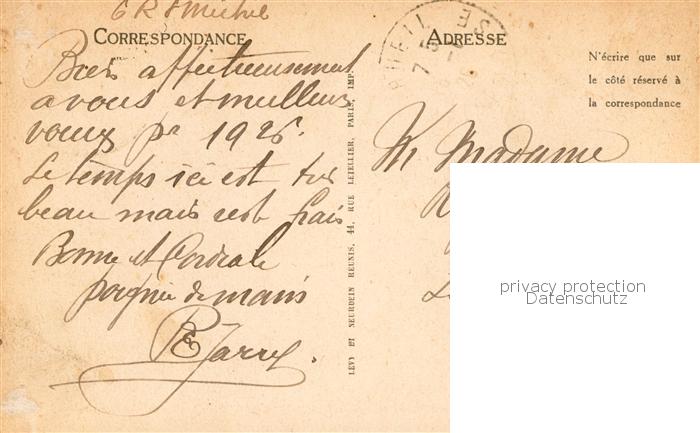 6 R St Michel
CORRESPONDANCE
Bien affectueusement
a vous et meilleurs
voeux pr 1926.
Le temps ici est très
beau mais c'est frais
Bonne et Cordiale
poignée de mains
ADRESSE
N'écrire que sur
le côté réservé à
la correspondance
M Madame
LEVY ET NEURDEIN REUNIS, 44, RUE LETELLIER, PARIS, IMP.
privacy protection
Datenschutz